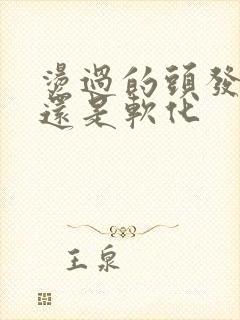 燙過的頭發
還是軟化
王泉